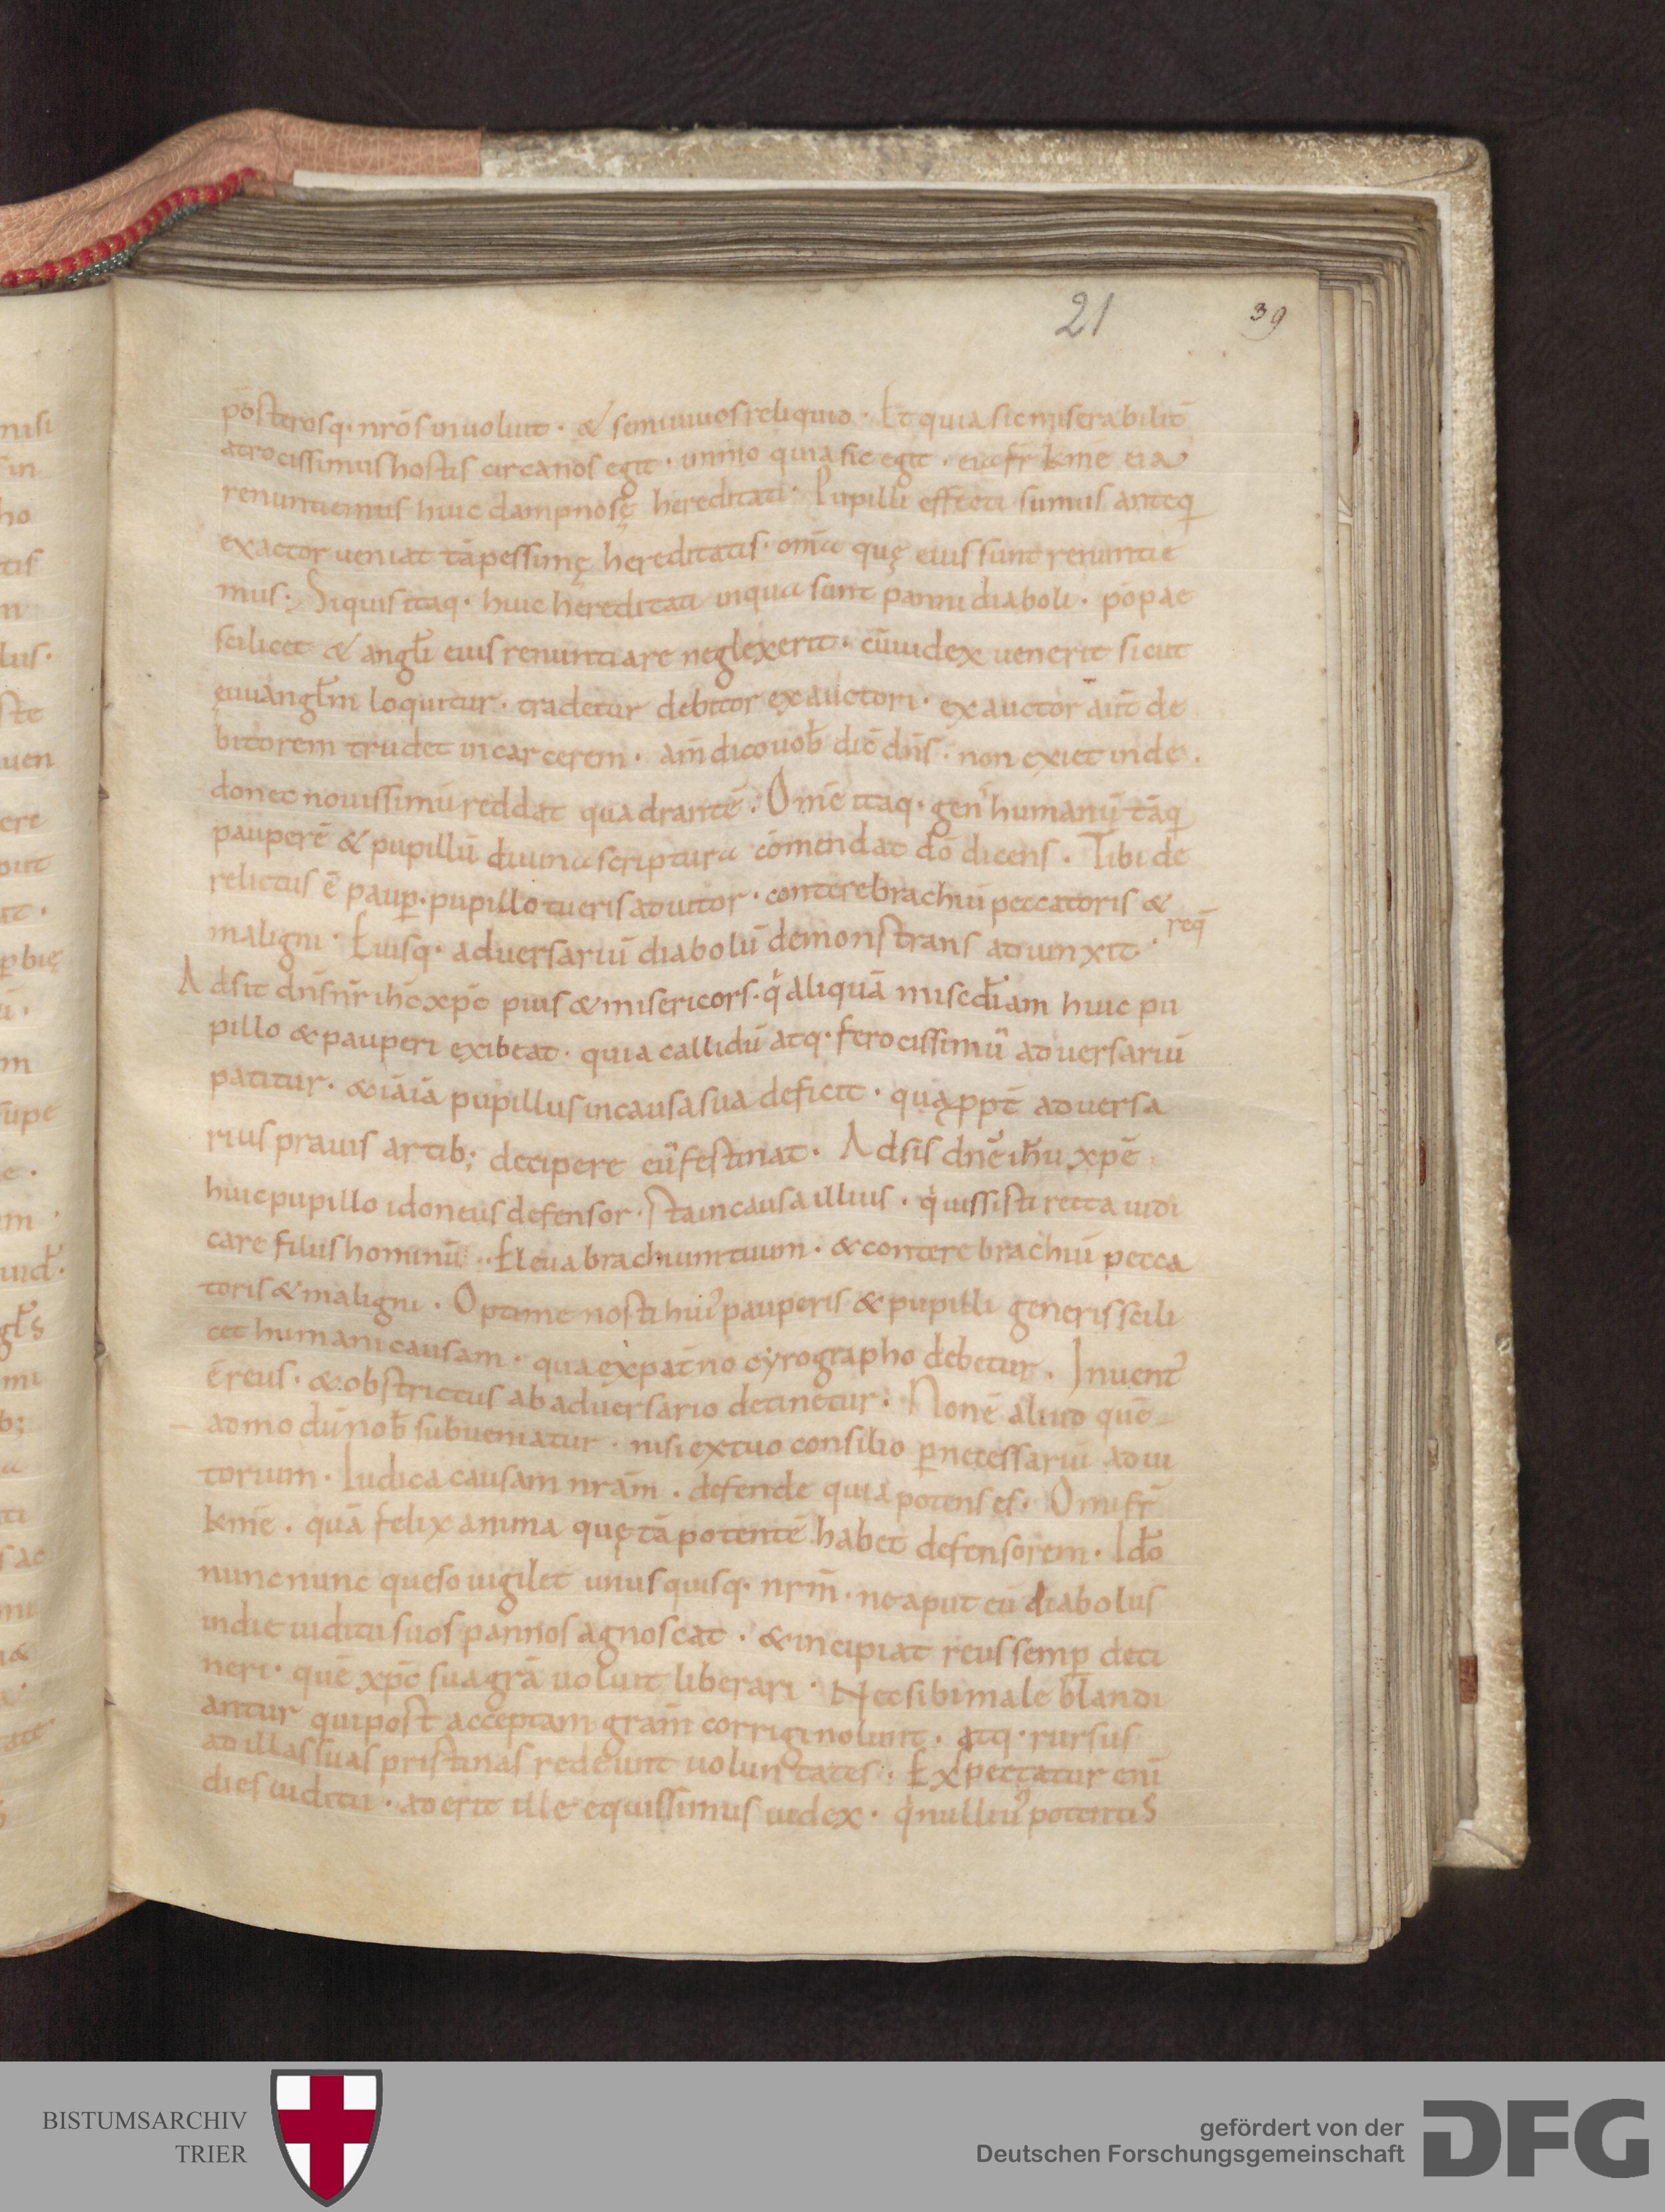 21
39
posterosq· nr̄os inuoluit · & semiuiuos reliquid · Et quia sic miserabilit̄
atrocissimus hostis circa nos egit · immo quia sic egit · eia fr̄ km̄e eia
renuntiemus huic dampnosę hereditati · Pupilli effecti sumus anteq
exactor ueniat tā pessimę hereditatis · om̄ia quę eius sunt renuntie
mus · Siquis itaq· huic hereditati inqua sunt panni diaboli · pōpae
scilicet & angl̄i eius renuntiare neglexerit · cū iudex uenerit sicut
euuangl̄m loquitur · tradetur debitor exauctori · exauctor aut̄ de
bitorem trudet in carcerem · am̄ dico uob̄ dic̄ dn̄s · non exiet inde ·
donec nouissimū reddat quadrantē · Om̄e itaq· gen' humanū tāq
pauperē & pupillū diuina scriptura cōmendat dō dicens · Tibi de
relictus ē paup · pupillo tu eris adiutor · contere brachiū peccatoris &
maligni · Euisq· aduersariū diabolū demonstrans adiunxit · req̄
Adsit dn̄s nr̄ ih̄c xp̄c pius & misericors · q' aliquā miscd̄iam huic pu
pillo & pauperi exibeat · quia callidū atq· ferocissimū aduersariū
patitur · & iā iā pupillus in causa sua deficit · quapp̄t aduersa
rius prauis artib; decipere eū festinat · Adsis dn̄e ih̄u xp̄e
huic pupillo idoneus defensor · Sta in causa illius · q' iussisti recta iudi
care filiis hominū · Eleua brachium tuum · & contere brachiū pecca
toris & maligni · Optime nosti hui' pauperis & pupilli generis scili
cet humani causam · qua ex pat̄no cyrographo debetur · Inuent'
ē reus · & obstrictus ab aduersario detinetur · Non ē aliud quē
admodū nob̄ subueniatur · nisi ex tuo consilio p necessariū adiu
torium · Iudica causam nr̄am · defende quia potens es · O mi fr̄
km̄e · quā felix anima quę tā potentē habet defensorem · Idō
nunc nunc queso uigilet unusquisq· nr̄m · ne aput eū diabolus
in die iuditii suos pannos agnoscat · & incipiat reus semp deti
neri · quē xp̄c sua gr̄a uoluit liberari · Nec sibi male blandi
antur qui post acceptam gr̄am corrigi nolunt · atq· rursus
ad illas suas pristinas redeunt uoluntates · Expectatur enī
dies iuditii · aderit ille equissimus iudex · q' nulliu' potentis
BISTUMSARCHIV
TRIER
gefördert von der
Deutschen Forschungsgemeinschaft
DFG